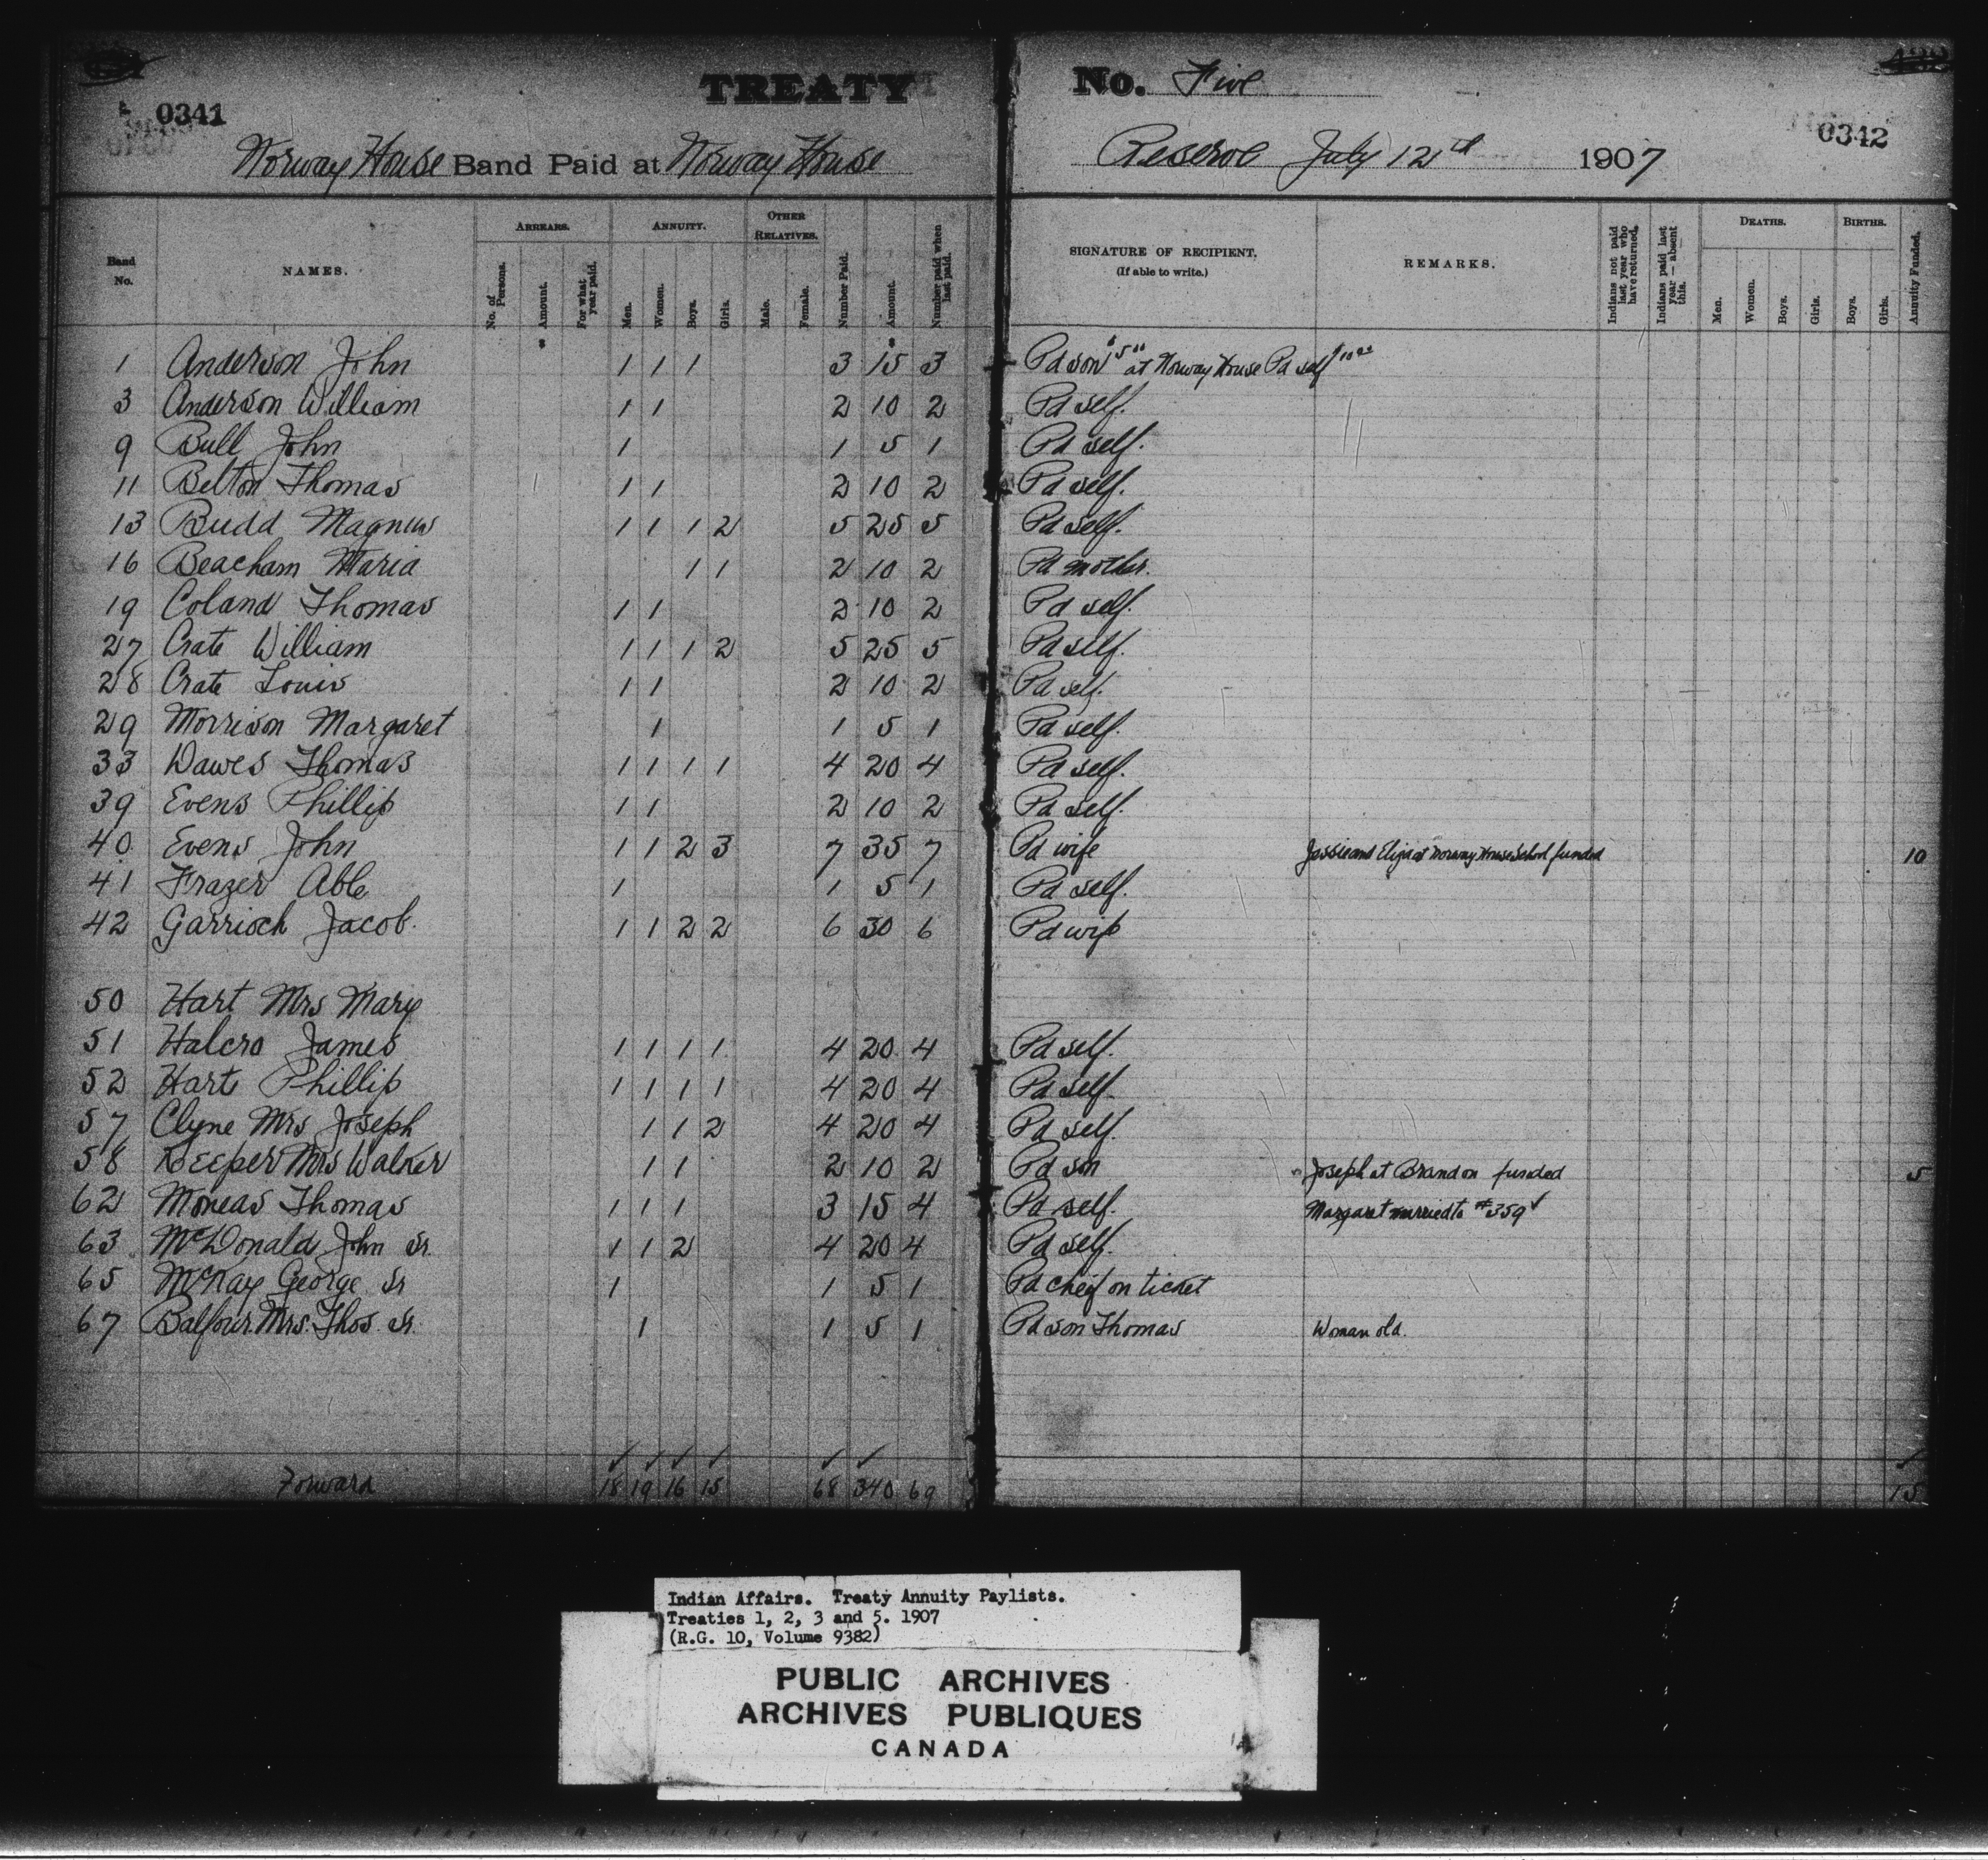 TREATY No. Five
0341
0342
Norway House Band Paid at Norway House Reserve July 12th 1907
Band No. NAMES. ARREARS. No. of Persons. Amount. For what year paid. ANNUITY. Men. Women. Boys. Girls. OTHER RELATIVES. Male. Female. Number Paid. Amount. Number paid when last paid. SIGNATURE OF RECIPIENT. (If able to write.) REMARKS. Indians not paid last year who have returned. Indians paid last year — absent this. DEATHS. Men. Women. Boys. Girls. BIRTHS. Boys. Girls. Annuity Funded.
$ $
1 Anderson John 1 1 1 3 15 3 Pd son $5 00 at Norway House Pd self $10 00
3 Anderson William 1 1 2 10 2 Pd self.
9 Bull John 1 1 5 1 Pd self.
11 Belton Thomas 1 1 2 10 2 Pd self.
13 Budd Magnus 1 1 1 2 5 25 5 Pd self.
16 Beacham Maria 1 1 2 10 2 Pd mother.
19 Coland Thomas 1 1 2 10 2 Pd self.
27 Crate William 1 1 1 2 5 25 5 Pd self.
28 Crate Louis 1 1 2 10 2 Pd self.
29 Morrison Margaret 1 1 5 1 Pd self.
33 Dawes Thomas 1 1 1 1 4 20 4 Pd self.
39 Evens Phillip 1 1 2 10 2 Pd self.
40 Evens John 1 1 2 3 7 35 7 Pd wife Jessie and Eliza at Norway House School funded 10
41 Frazer Able 1 1 5 1 Pd self.
42 Garrioch Jacob. 1 1 2 2 6 30 6 Pd wife
50 Hart Mrs Mary
51 Halcro James 1 1 1 1 4 20 4 Pd self.
52 Hart Phillip 1 1 1 1 4 20 4 Pd self.
57 Clyne Mrs Joseph 1 1 2 4 20 4 Pd self.
58 Keeper Mrs Walker 1 1 2 10 2 Pd son Joseph at Brandon funded 5
62 Moneas Thomas 1 1 1 3 15 4 Pd self. Margaret married to #359 ✓
63 McDonald John Sr 1 1 2 4 20 4 Pd self.
65 McKay George Sr 1 1 5 1 Pd cheif on ticket
67 Balfour Mrs. Thos. Sr. 1 1 5 1 Pd son Thomas Woman old.
✓ ✓ ✓ ✓ ✓ ✓ ✓
Forward 18 19 16 15 68 340 69 15
Indian Affairs. Treaty Annuity Paylists.
Treaties 1, 2, 3 and 5. 1907
(R.G. 10, Volume 9382)
PUBLIC ARCHIVES
ARCHIVES PUBLIQUES
CANADA